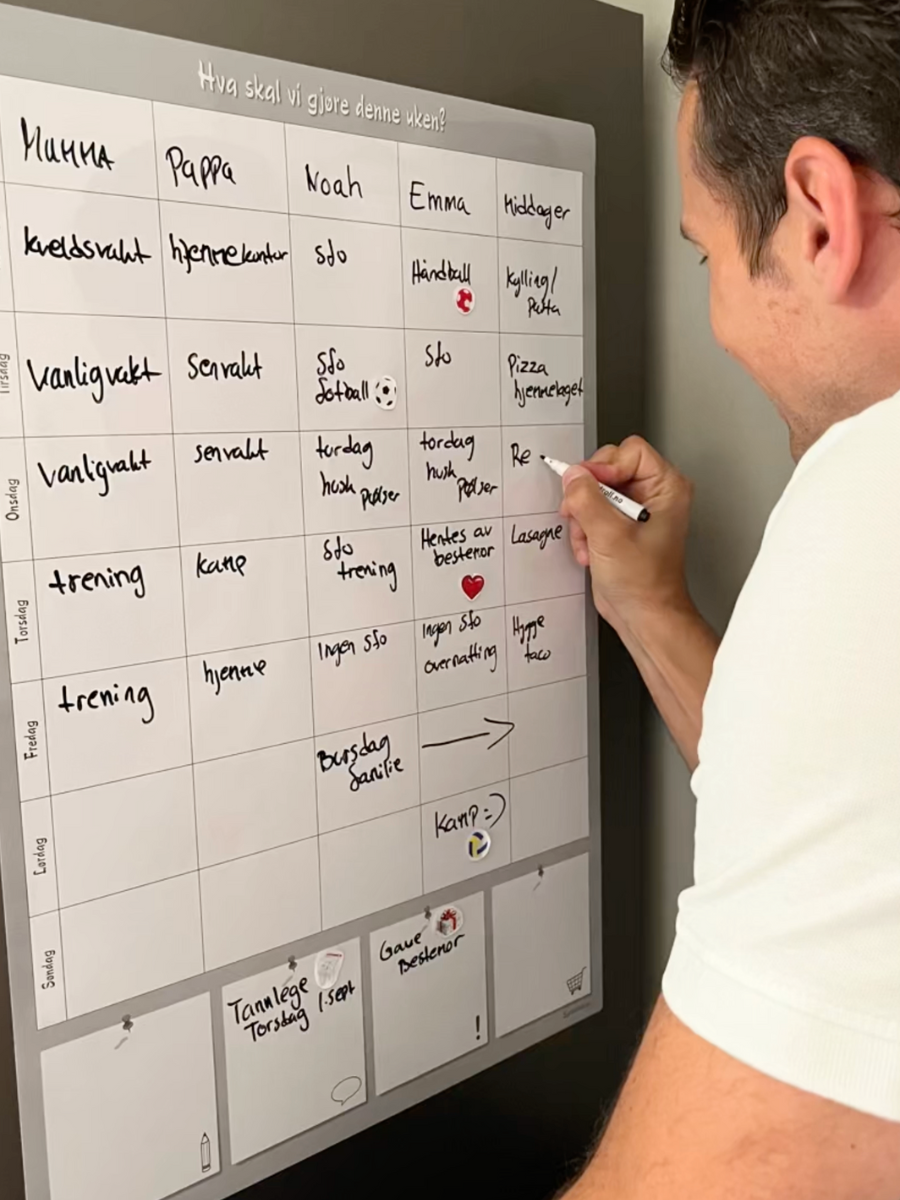 Hva skal vi gjøre denne uken?
Mumma Pappa Noah Emma Middager
kveldsvakt hjemmekontor sfo Håndball Kylling/
Pasta
Tirsdag vanligvakt senvakt Sfo Sfo Pizza
fotball hjemmelaget
Onsdag vanligvakt senvakt turdag tordag Re
husk husk
Pølser Pølser
Torsdag trening kamp Sfo Hentes av Lasagne
trening bestemor
Fredag trening hjemme Ingen sfo Ingen sfo Hygge
overnatting taco
Lørdag Bursdag
familie
Søndag Kamp :)
Tannlege Gave
Torsdag 1.sept Bestemor
!